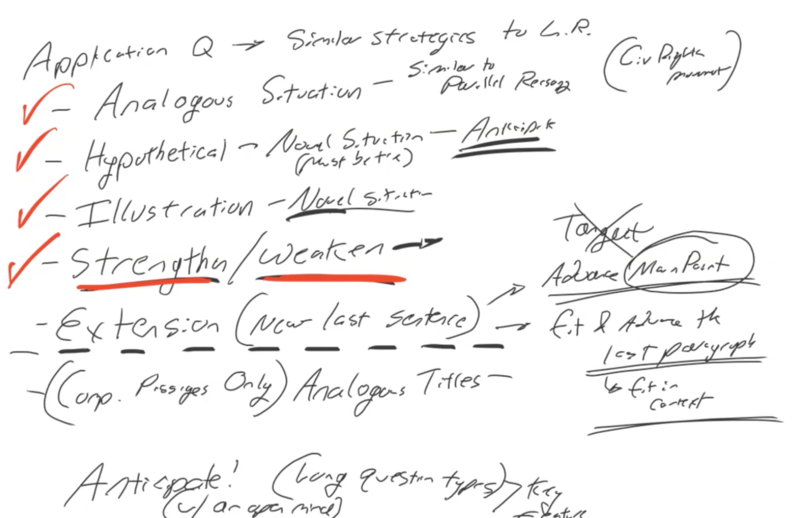 Application Q → Similar strategies to L.R.
(Civ Rights
- Analogous Situation - Similar to
Parallel Reasong
- Hypothetical - Novel Situation - Anticipate
(must be true)
- Illustration - Novel situation
- Strengthen/Weaken →
Tangent
Advance Main Point
- Extension (New last sentence) → fit & Advance the
last paragraph
↳ fit in
context
- (Comp. Passages Only) Analogous Titles -
Anticipate! (Long question types) > they
(w/ an open mind)